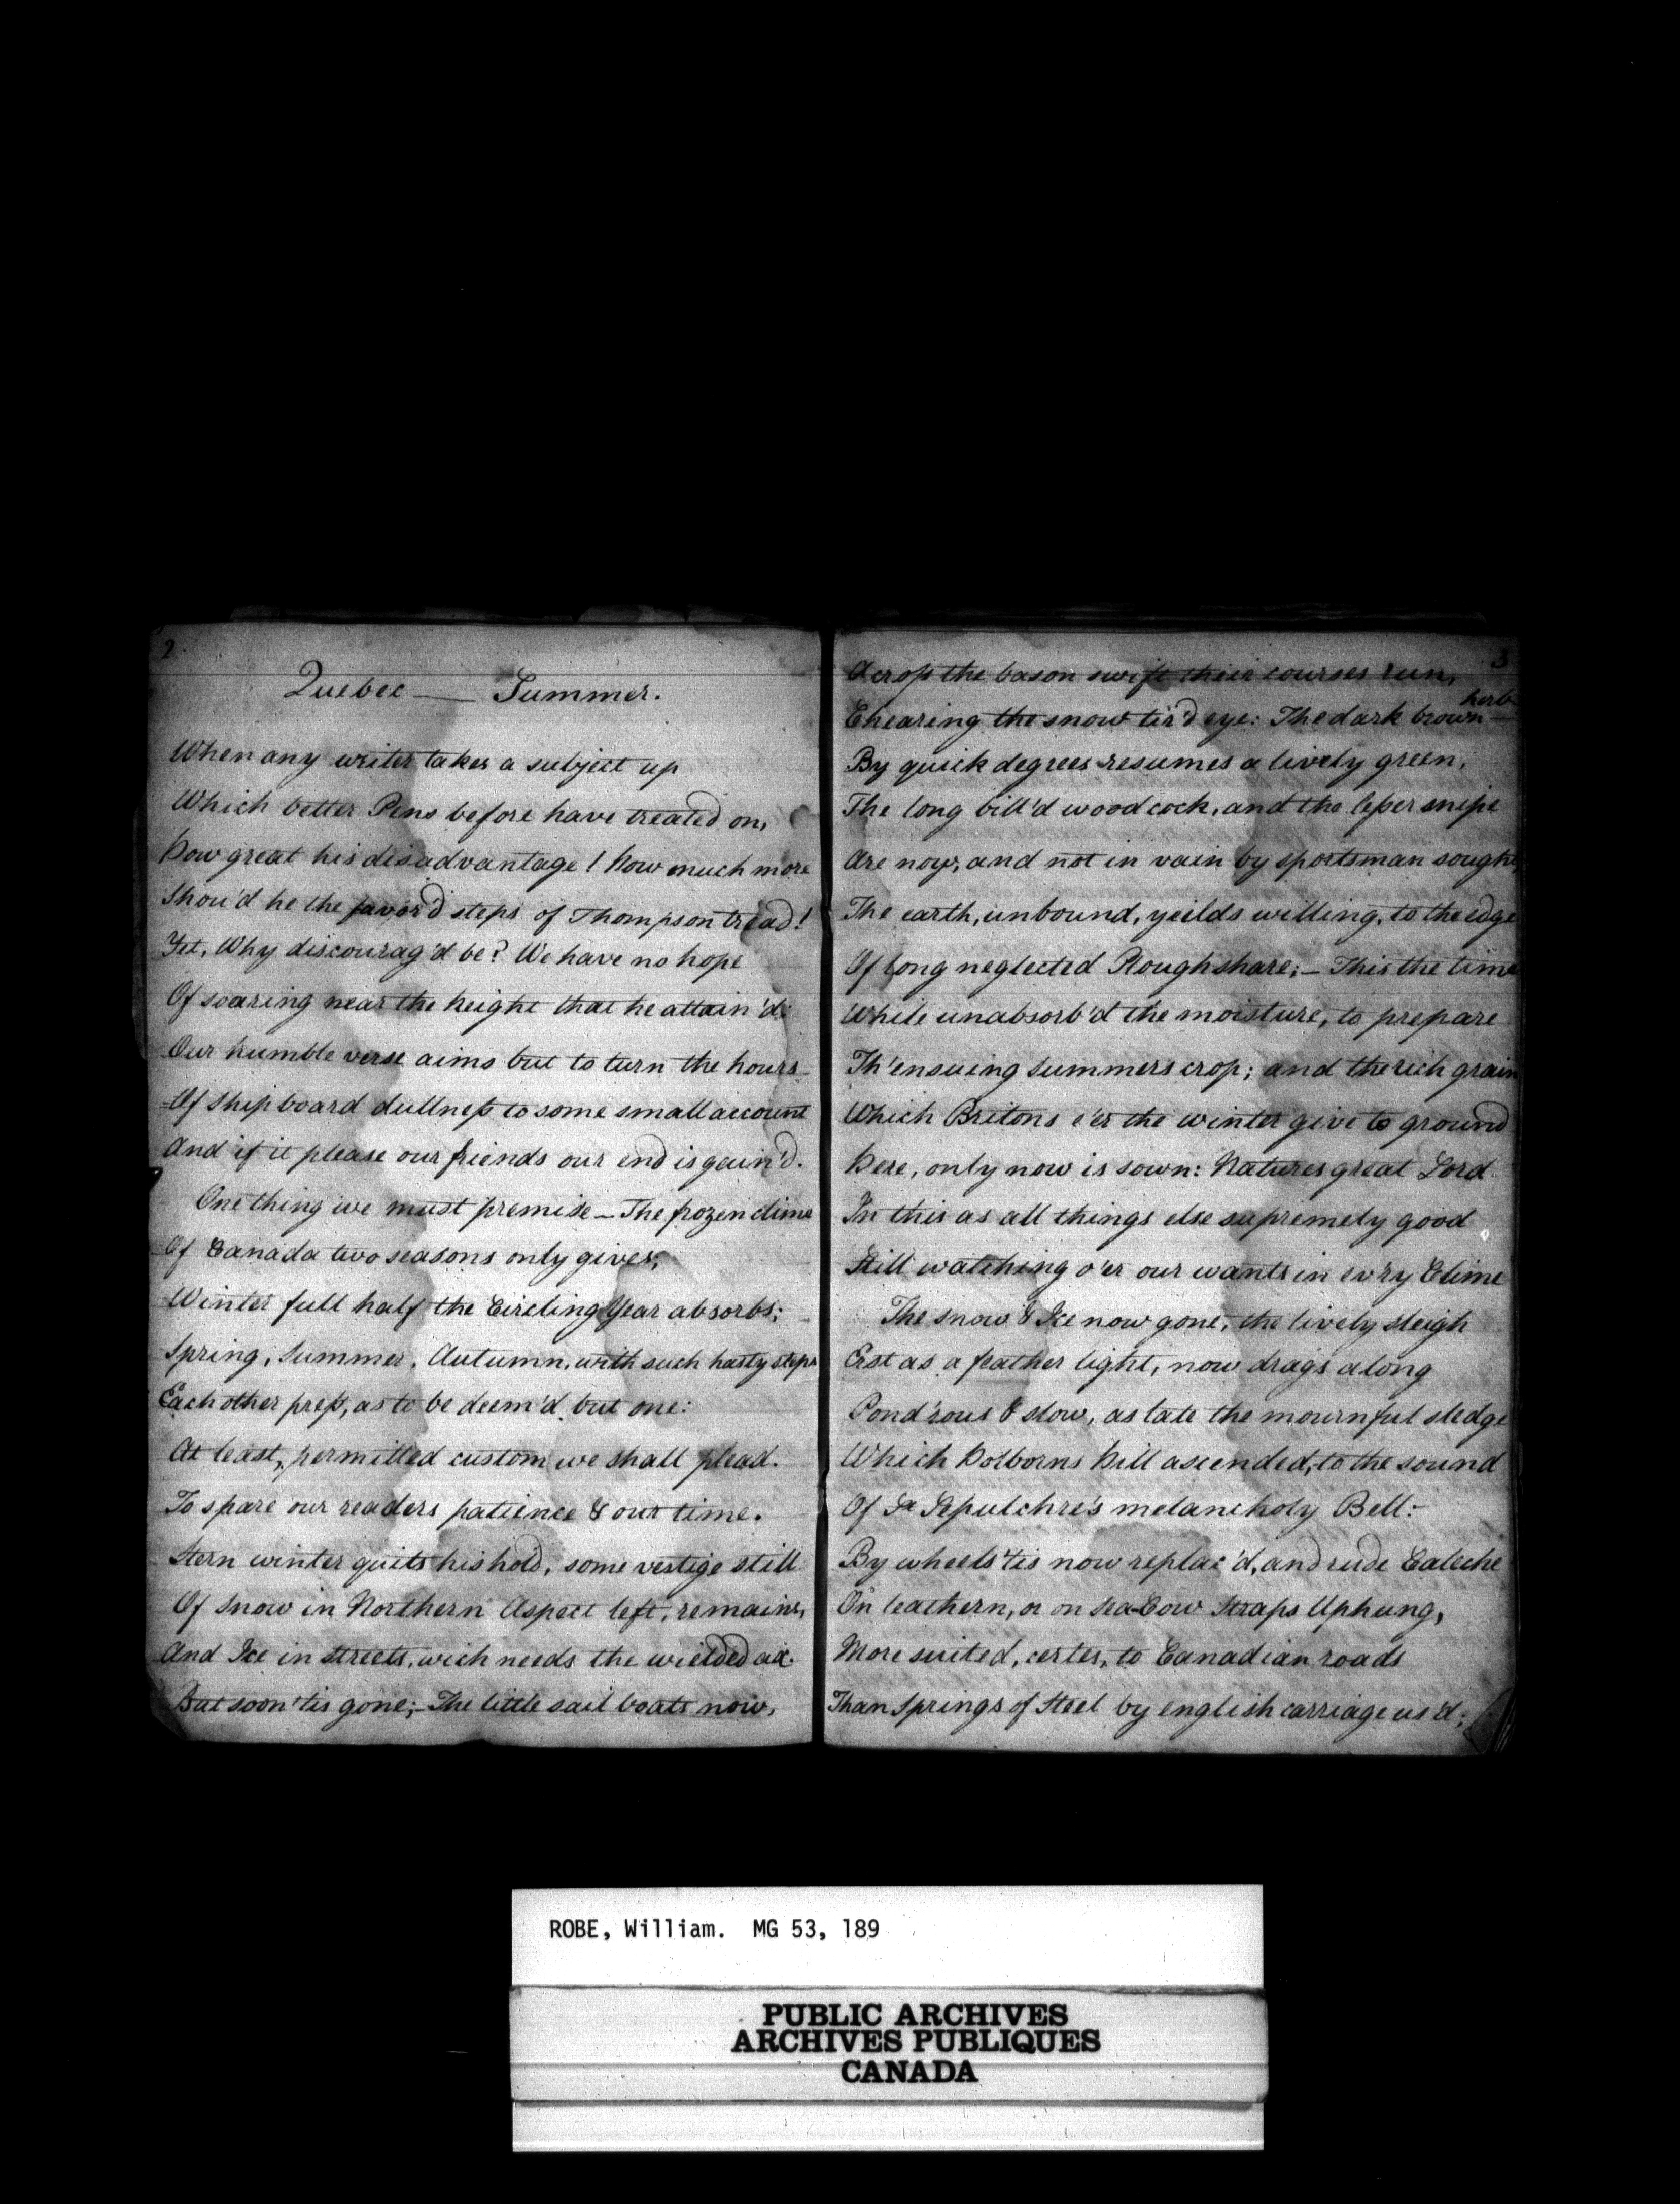 2
Quebec — Summer.
When any writer takes a subject up
Which better Pens before have treated on,
How great his disadvantage! how much more
Shou'd he the favor'd steps of Thompson tread!
Yet, Why discourag'd be? We have no hope
Of soaring near the height that he attain'd:
Our humble verse aims but to turn the hours
Of ship board dullness to some small account
And if it please our friends our end is gain'd.
One thing we must premise — The frozen clime
Of Canada two seasons only gives,
Winter full half the Circling Year absorbs;
Spring, Summer, Autumn, with such hasty steps
Each other press, as to be deem'd but one:
At least, permitted custom we shall plead.
To spare our readers patience & our time.
Stern winter quits his hold, some vestige still
Of snow in Northern Aspect left, remains,
And Ice in streets, wich needs the wielded ax.
But soon 'tis gone; – The little sail boats now,
3
Across the bason swift their courses run,
herb
Chearing the snow tir'd eye: The dark brown —
By quick degrees resumes a lively green,
The long bill'd woodcock, and the lesser snipe
Are now, and not in vain by sportsman sought,
The earth, unbound, yeilds willing, to the edge
Of long neglected Ploughshare; – This the time
While unabsorb'd the moisture, to prepare
Th'ensuing summers crop; and the rich grain
Which Britons e'er the winter give to ground
Here, only now is sown: Natures great Lord
In this as all things else supremely good
Still watching o'er our wants in ev'ry Clime
The snow & Ice now gone, the lively sleigh
Erst as a feather light, now drags along
Pond'rous & slow, as late the mournful sledge
Which Holborns Hill ascended, to the sound
Of St Sepulchre's melancholy Bell: –
By wheels 'tis now replac'd, and rude Caleche
On leathern, or on Sea-Cow Straps Uphung,
More suited, certes, to Canadian roads
Than Springs of Steel by english carriage us'd;
ROBE, William. MG 53, 189
PUBLIC ARCHIVES
ARCHIVES PUBLIQUES
CANADA